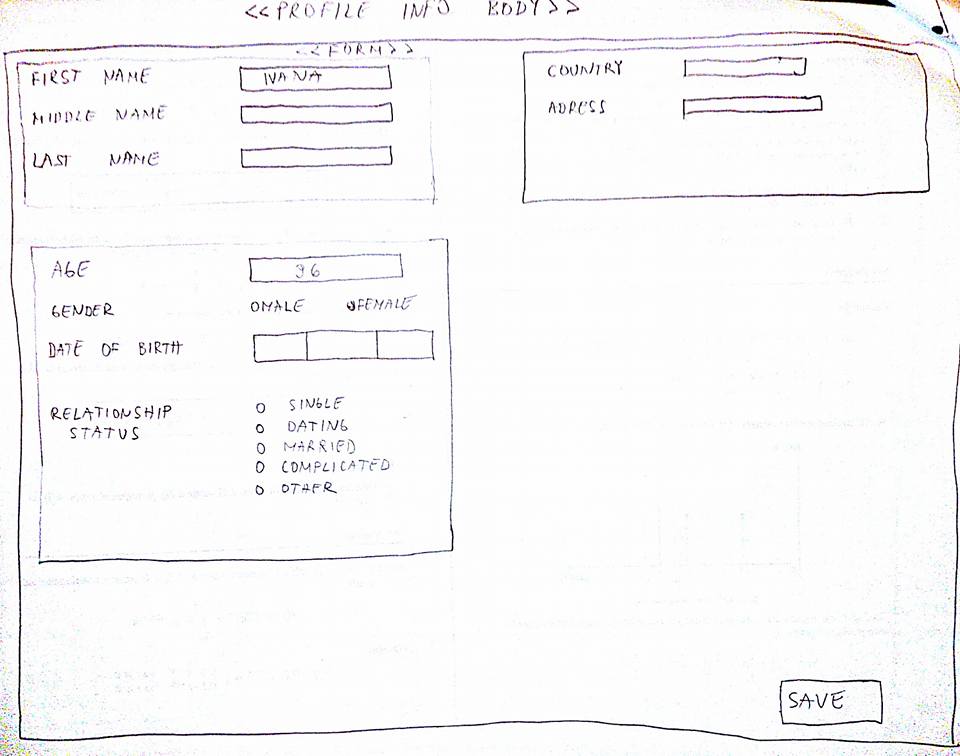 <<PROFILE INFO BODY>>
<<FORM>>
FIRST NAME IVANA
MIDDLE NAME
LAST NAME
COUNTRY
ADRESS
AGE 96
GENDER OMALE OFEMALE
DATE OF BIRTH
RELATIONSHIP
STATUS
O SINGLE
O DATING
O MARRIED
O COMPLICATED
O OTHER
SAVE